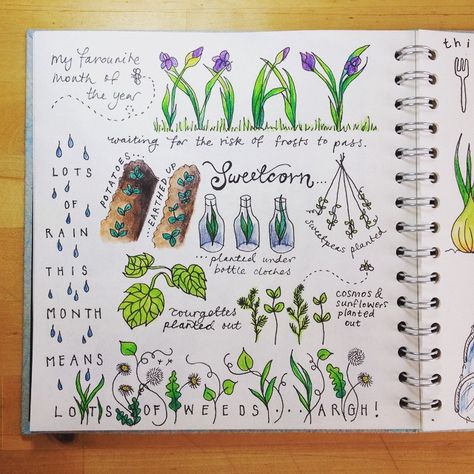 my favourite
month of
the year
MAY
waiting for the risk of frosts to pass.
POTATOES...
...EARTHED UP
Sweetcorn...
...planted under
bottle cloches
sweetpeas planted
courgettes
planted out
cosmos &
sunflowers
planted
out
LOTS
OF
RAIN
THIS
MONTH
MEANS
LOTS OF WEEDS... ARGH!
thi